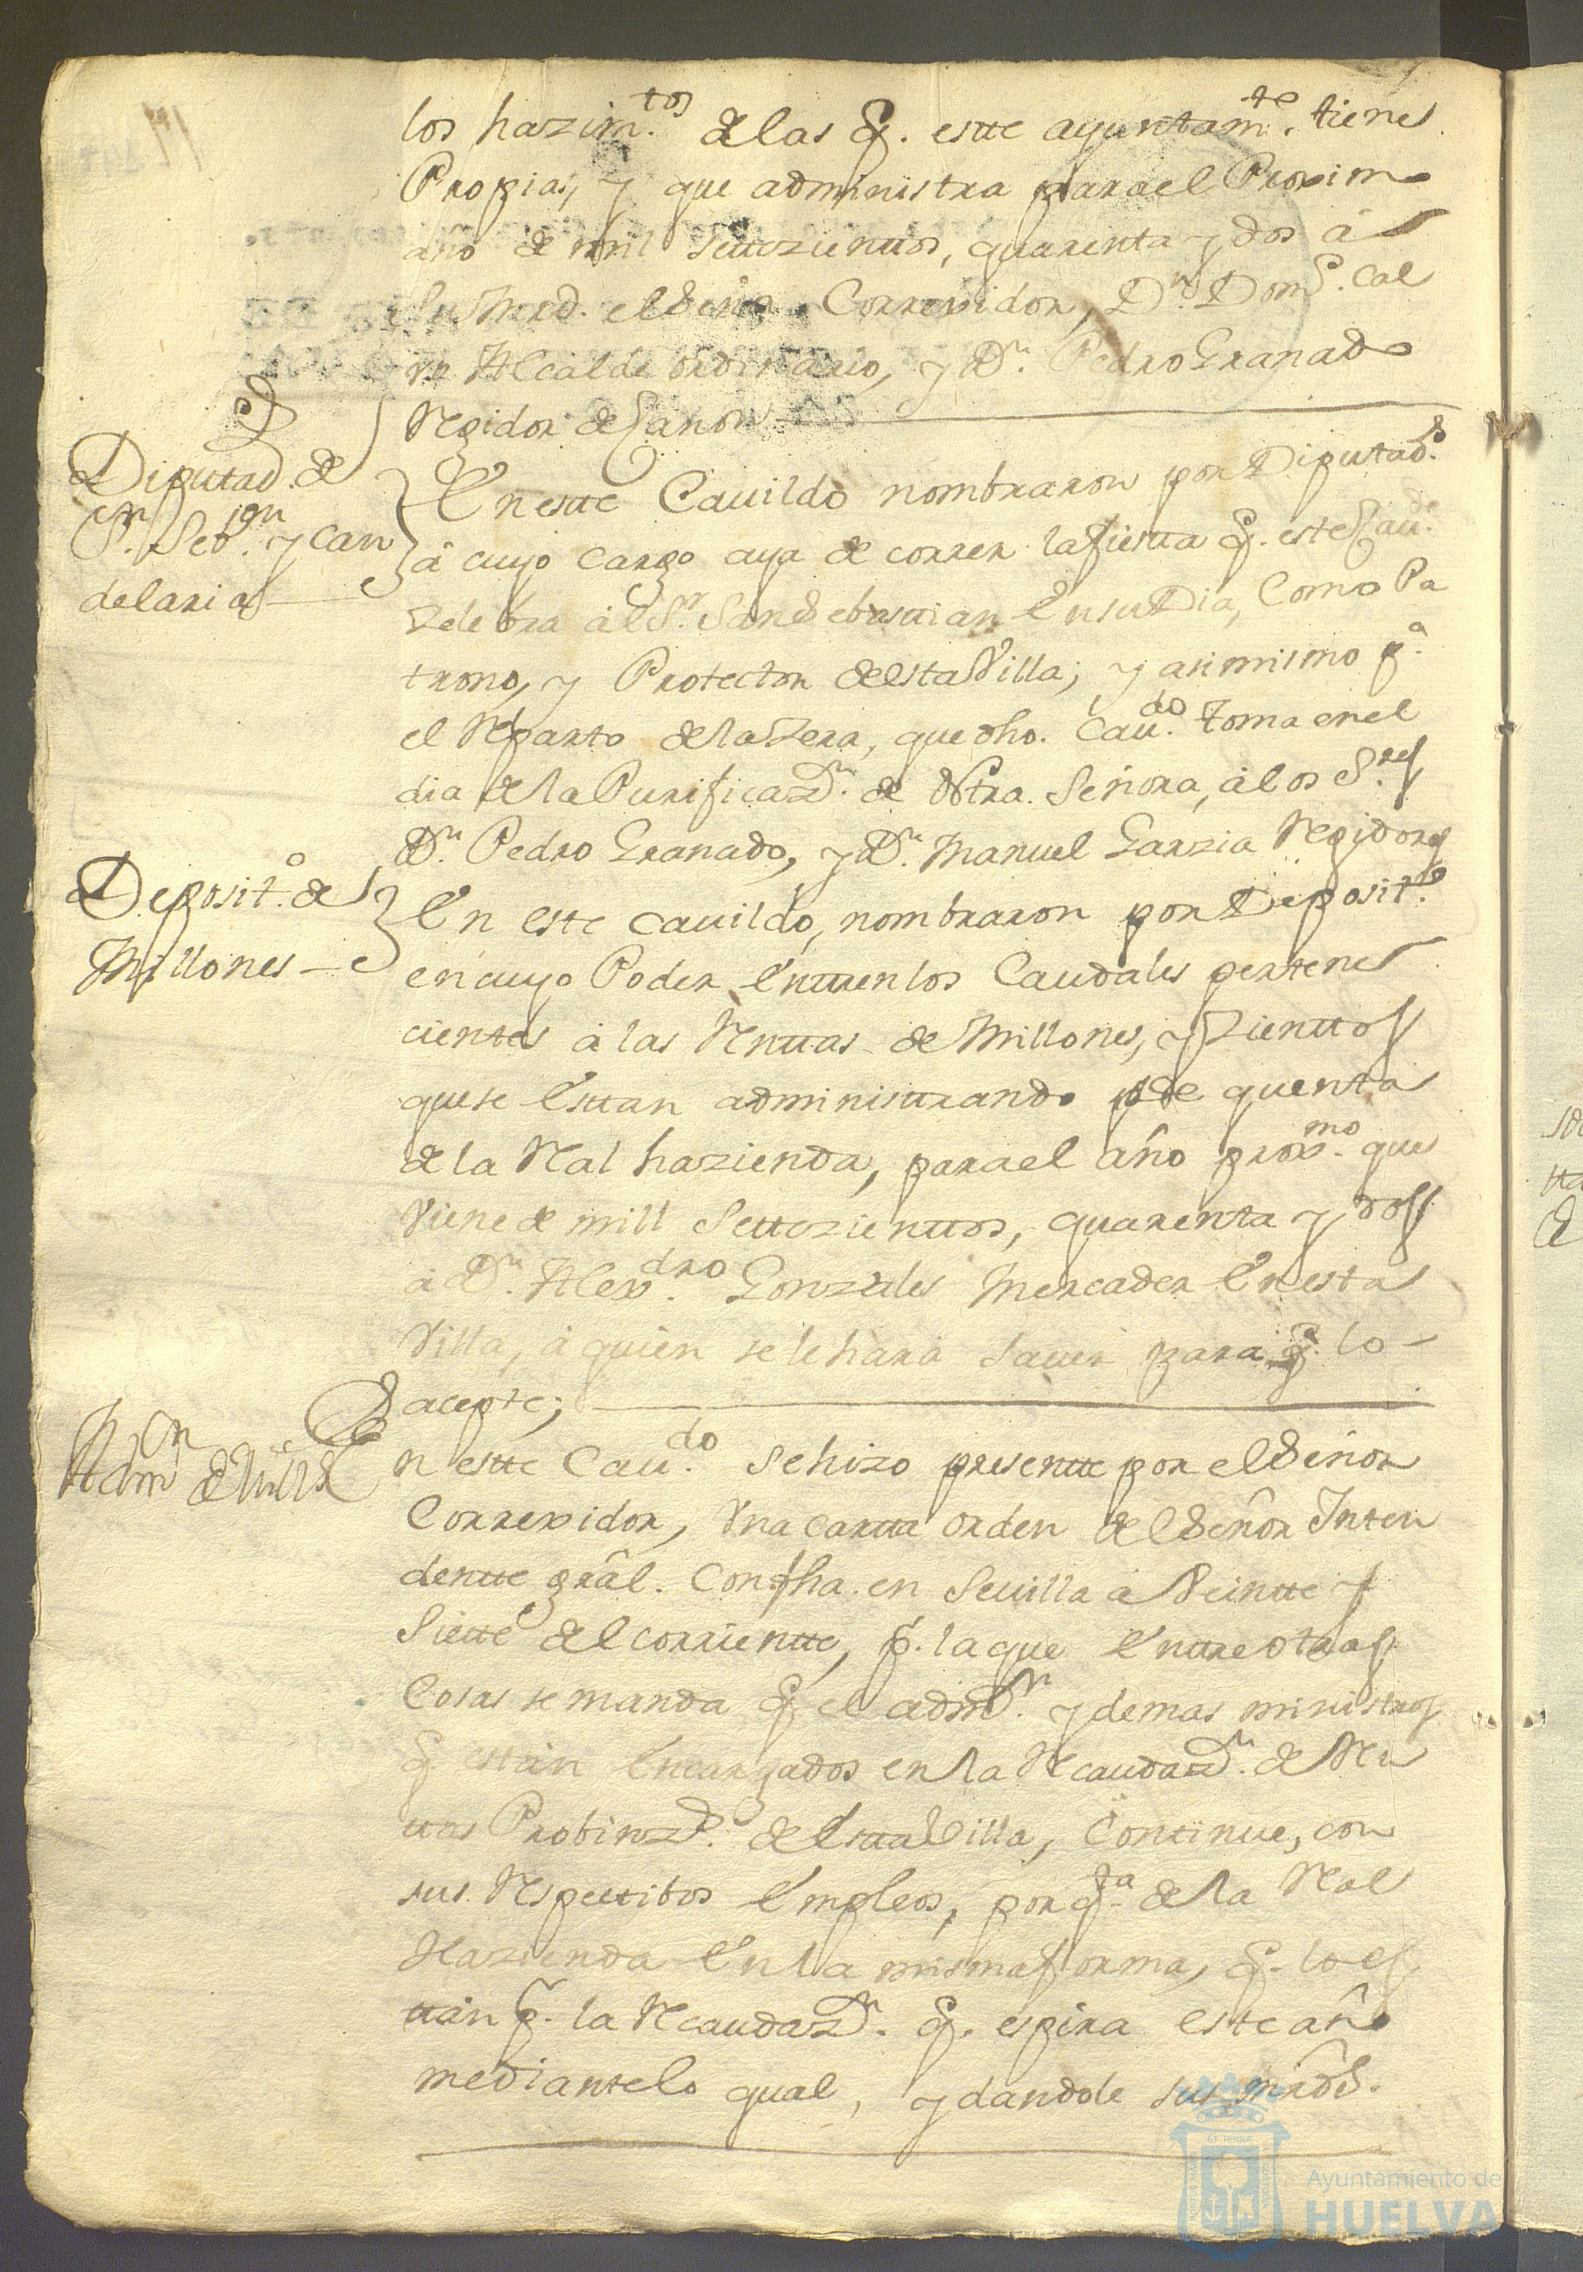 los hazim.tos de las q. estte ayuntam.te tiene
Propias, y que administra para el Proximo
año de mil settezienttos, quarenta y dos à
Su Mrd. el Señor Correxidor, Dn. Domo. Cal
vo Alcalde ordinario, y Dn. Pedro Granado
Regidor de Canon
Diputad. de
Sn. Seb.ian y Can
delaria
En estte Cauildo nombraron por Diputad.s
à cuyo cargo aya de correr la fiestta q. este Cau.do
Zelebra àl Sr. San Sebasttian En su Dia, Como Pa
trono, y Protector de esta Villa; y asimismo p.a
el Reparto de la Zera, que dho. Cau.do toma en el
dia de la Purificazn. de Ntra. Señora, à los S.res
Dn. Pedro Granado, y Dn. Manuel Garzia Regidores
Deposit.o de
Millones
En este cauildo, nombraron por Deposit.o
en cuyo Poder Enttren los Caudales pertene
cientes à las Renttas de Millones, y Zienttos
que se Esttan administtrando de quenta
de la Real hazienda, para el año prox.mo que
Viene de mill Settezienttos, quarenta y dos
à Dn. Alex.dro Gonzales Mercader En esta
Villa, à quien se le harà sauer para q. lo
acepte;
Admn. de Mills.
En estte Cau.do se hizo presentte por el Señor
Correxidor, Vna cartta orden del Señor Inten
dentte grâl. Con fha. en Seuilla à Veintte y
Siette del corrientte, p. la que Enttre otras
Cosas se manda q. el admor. y demas ministros
q. estàn Encargados en la Recaudazn. de Ren
ttas Probinz.s de Estta Villa, Continue, con
sus Respecttibos Empleos, por q.ta de la Real
Hazienda En la misma forma, q. lo es
ttàn p. la Recaudazn. q. espira este año
mediante lo qual, y dandole sus mrds.
Ayuntamiento de
HUELVA